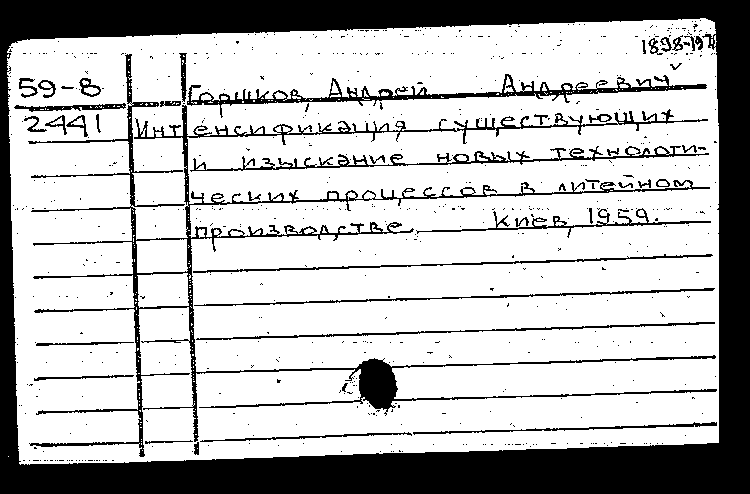 59-8 Горшков, Андрей Андреевич
2441 Интенсификация существующих
и изыскание новых технологи-
ческих процессов в литейном
производстве. Киев, 1959.